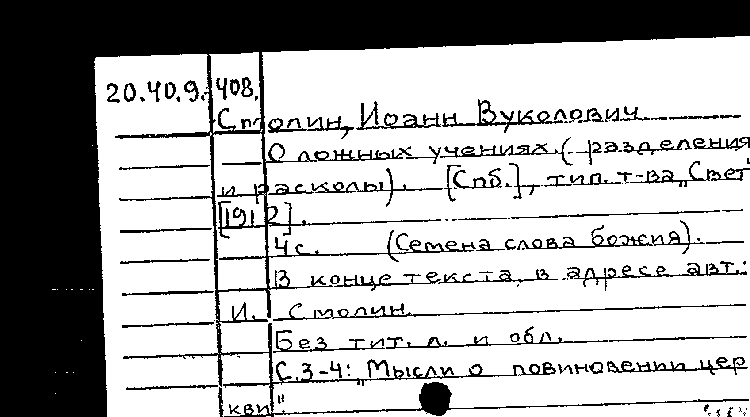 20.40.9. 408.
Столин, Иоанн Вуколович
О ложных учениях. (разделения
и расколы). [Спб.], тип. т-ва „Свет"
[1912].
4с. (Семена слова божия).
В конце текста, в адресе авт.:
И. Столин.
Без тит. л. и обл.
С.3-4: „Мысли о повиновении цер
кви".